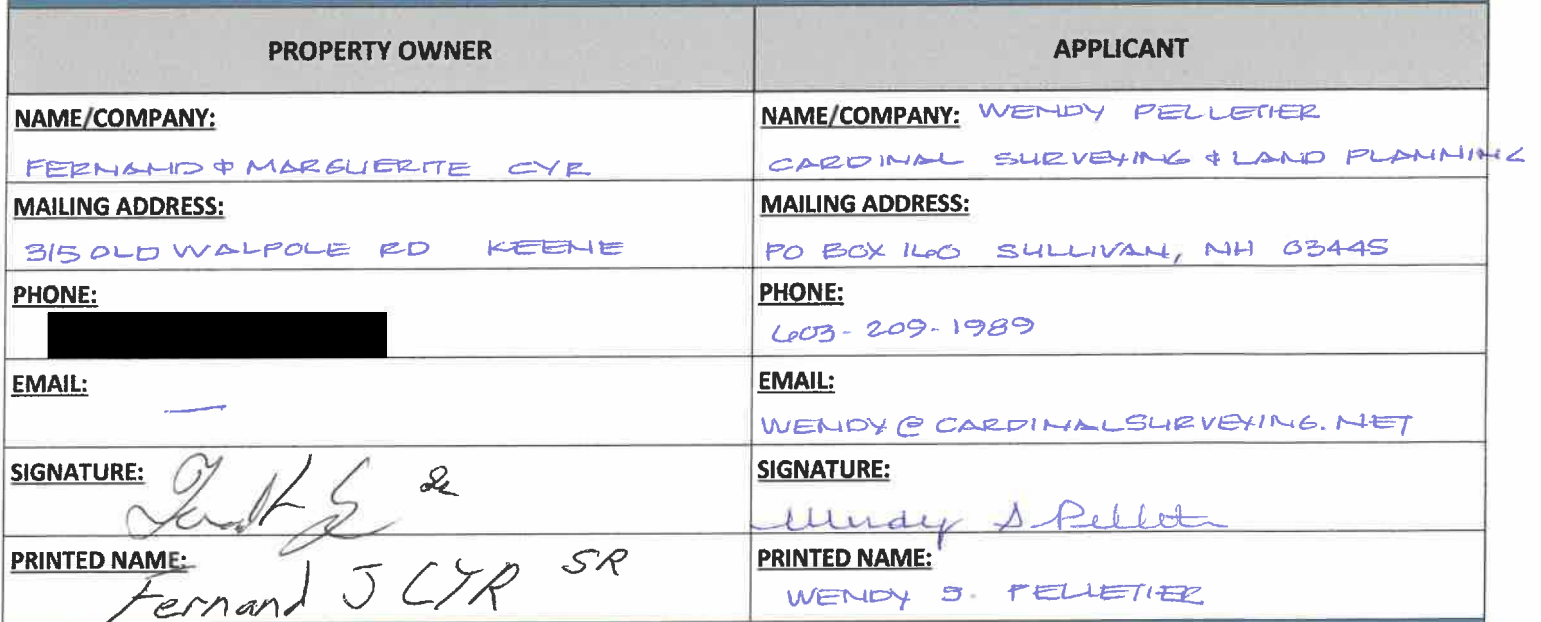 PROPERTY OWNER
APPLICANT
NAME/COMPANY:
FERNAND & MARGUERITE CYR
NAME/COMPANY: WENDY PELLETIER
CARDINAL SURVEYING & LAND PLANNING
MAILING ADDRESS:
315 OLD WALPOLE RD KEENE
MAILING ADDRESS:
PO BOX 160 SULLIVAN, NH 03445
PHONE:
PHONE:
603-209-1989
EMAIL:
—
EMAIL:
WENDY@CARDINALSURVEYING.NET
SIGNATURE:
SIGNATURE:
Wendy S Pelletier
PRINTED NAME:
Fernand J CYR SR
PRINTED NAME:
WENDY S. PELLETIER